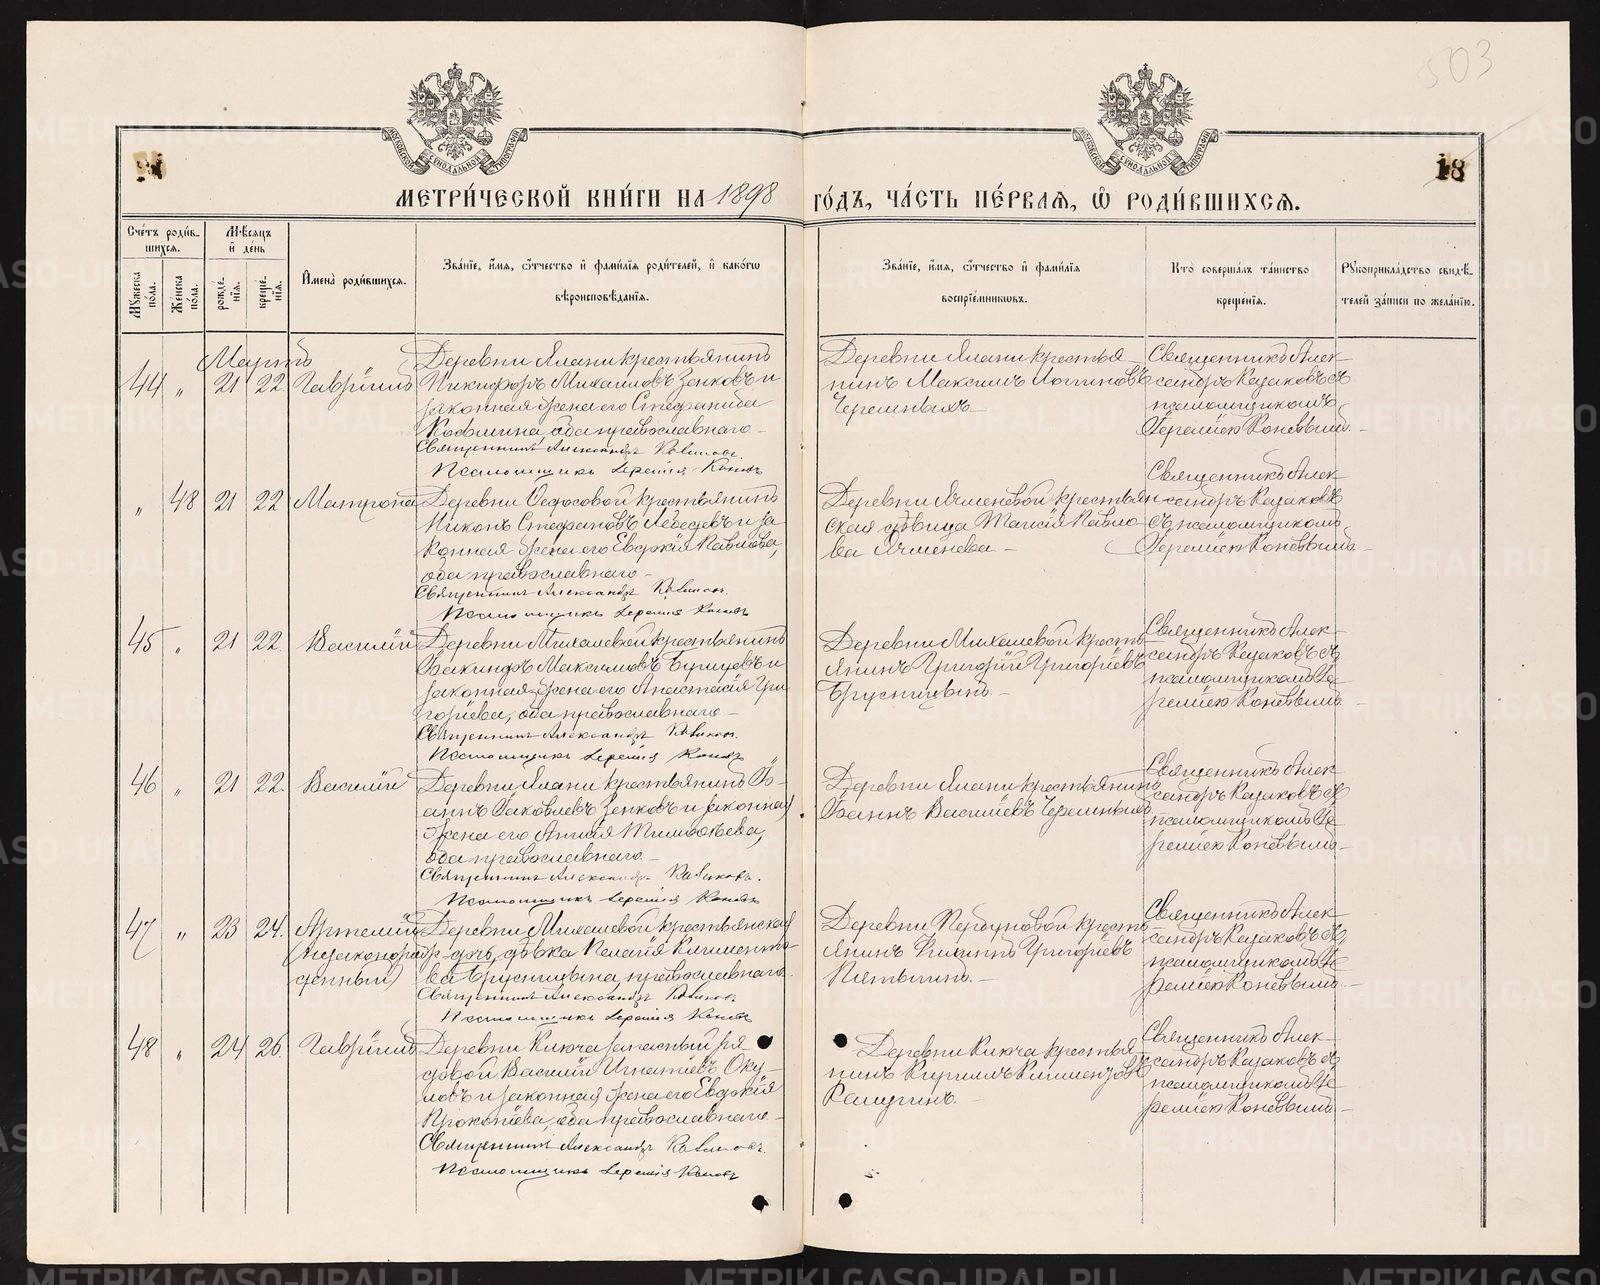 503
18
МЕТРИ́ЧЕСКОЙ КНИ́ГИ НА 1898 ГО́ДЪ, ЧА́СТЬ ПЕ́РВАЯ, Ѿ РОДИ́ВШИХСЯ.
Сче́тъ роди́в-
шихся.
Мꙋжеска по́ла.
Же́нска по́ла.
Мѣ́сяцъ
и҆ де́нь
рожде́-
нїя.
креще́-
нїя.
И҆мена̀ роди́вшихся.
Зва́нїе, и҆́мя, ѻ҆́тчество и҆ фами́лїя роди́телей, и҆ како́гѡ
вѣроисповѣ́данїя.
Зва́нїе, и҆́мя, ѻ҆́тчество и҆ фами́лїя
воспрїе́мникѡвъ.
Кто̀ соверша́лъ та́инство
креще́нїя.
Рꙋкоприкла́дство свидѣ́-
телей за́писи по жела́нїю.
Мартъ
44 " 21 22. Гаврiилъ
Деревни Ялани крестьянинъ
Никифоръ Михаиловъ Зенковъ и
законная жена его Стефанида
Козмина, оба православнаго
Священникъ Александръ Казаковъ.
Псаломщикъ Iеремiя Коневъ
Деревни Ялани крестья
нинъ Максимъ Логиновъ
Черемныхъ
Священникъ Алек-
сандръ Казаковъ съ
псаломщикомъ
Iеремiею Коневымъ.
" 48 21 22 Матрона
Деревни Федосовой крестьянинъ
Никонъ Стефановъ Лебедевъ и за
конная жена его Евдокiя Павлова,
оба православнаго
Священникъ Александръ Казаковъ.
Псаломщикъ Iеремiя Коневъ
Деревни Ячменевой крестьян-
ская дѣвица Таисiя Павло
ва Ячменева.
Священникъ Алек-
сандръ Казаковъ
съ псаломщикомъ
Iеремiею Коневымъ
45 " 21 22. Василiй
Деревни Михалевой крестьянинъ
Iакиндъ Максимовъ Бунцевъ и
законная жена его Анастасiя Гри
горiева, оба православнаго
Священникъ Александръ Казаковъ.
Псаломщикъ Iеремiя Коневъ
Деревни Михалевой кресть
янинъ Григорiй Григорiевъ
Брусницынъ.
Священникъ Алек-
сандръ Казаковъ съ
псаломщикомъ Iе
ремiею Коневымъ
46 " 21 22. Василiй
Деревни Ялани крестьянинъ Iо-
аннъ Iаковлевъ Зенковъ и законная
жена его Анисiя Тимофѣева,
оба православнаго
Священникъ Александръ Казаковъ.
Псаломщикъ Iеремiя Коневъ
Деревни Ялани крестьянинъ
Iоаннъ Василiевъ Черемныхъ
Священникъ Алек
сандръ Казаковъ съ
псаломщикомъ Iе
ремiею Коневымъ
47 " 23 24. Артемiй
(незаконорож-
денный)
Деревни Михалевой крестьянская
дочь, дѣвка Пелагiя Климента
ва Брусницына, православнаго.
Священникъ Александръ Казаковъ
Псаломщикъ Iеремiя Коневъ
Деревни Перуновой кресть
янинъ Филиппъ Григорiевъ
Пятыгинъ.
Священникъ Алек
сандръ Казаковъ съ
псаломщикомъ Iе
ремiею Коневымъ.
48 " 24 26. Гаврiилъ
Деревни Ключа запасный ря
довой Василiй Игнатiевъ Оку-
ловъ и законная жена его Евдокiя
Прокопiева, оба православнаго
Священникъ Александръ Казаковъ.
Псаломщикъ Iеремiя Коневъ
Деревни Ключа крестья
нинъ Кириллъ Климентовъ
Калугинъ.
Священникъ Алек
сандръ Казаковъ съ
псаломщикомъ Iе
ремiею Коневымъ
METRIKI.GASO-URAL.RU